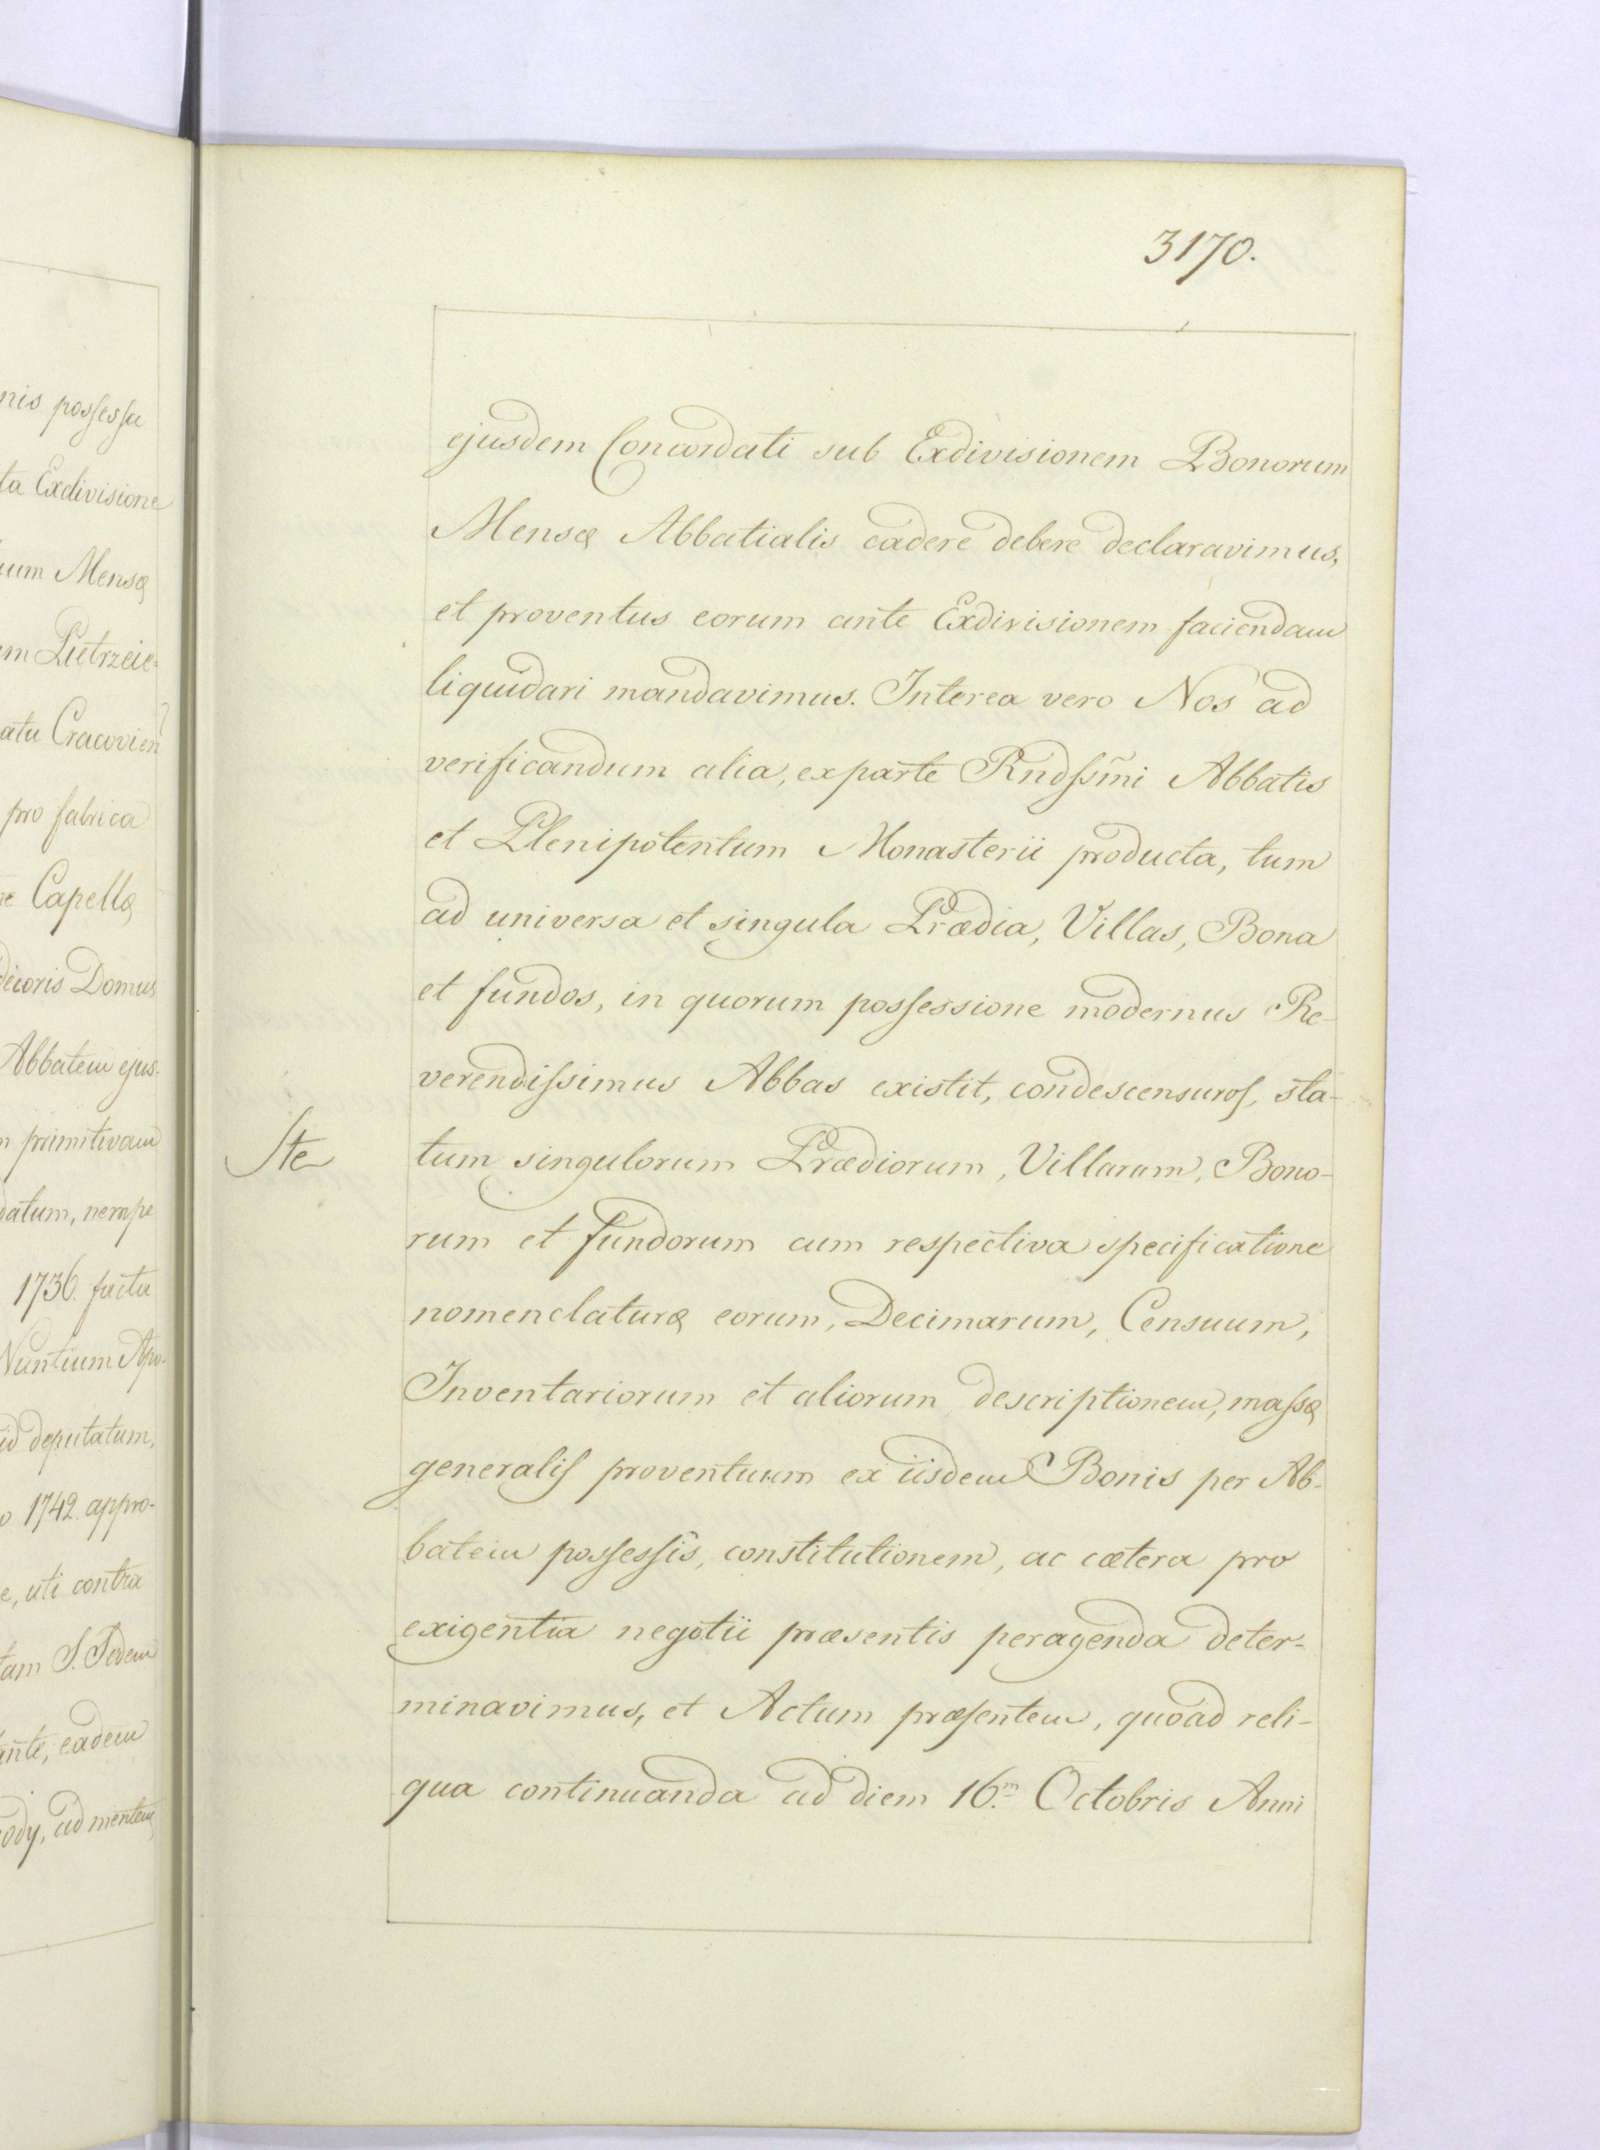 3170.
ejusdem Concordati sub Exdivisionem Bonorum
Mensæ Abbatialis cadere debere declaravimus,
et proventus eorum ante Exdivisionem faciendam
liquidari mandavimus. Interea vero Nos ad
verificandum alia, ex parte Rndssmi Abbatis
et Plenipotentum Monasterii producta, tum
ad universa et singula Prædia, Villas, Bona
et fundos, in quorum possessione modernus Re-
verendissimus Abbas existit, condescensuros, sta-
Ste
tum singulorum Prædiorum, Villarum, Bono-
rum et fundorum cum respectiva specificatione
nomenclaturæ eorum, Decimarum, Censuum,
Inventariorum et aliorum descriptionem, massæ
generalis proventuum ex iisdem Bonis per Ab-
batem possessis, constitutionem, ac cætera pro
exigentia negotii præsentis peragenda deter-
minavimus, et Actum præsentem, quoad reli-
qua continuanda ad diem 16.m Octobris Anni
nis possessa
ta Exdivisione
um Mensæ
em Pietrzeie-
atu Cracovien
pro fabrica
Capellæ
decoris Domus
Abbatem ejus-
primitivam
datum, nempe
1736. facta
Nuntium Apo-
id deputatum,
1742. appro-
e, uti contra
tam S. Sedem
ante, eadem
ody, ad mentem